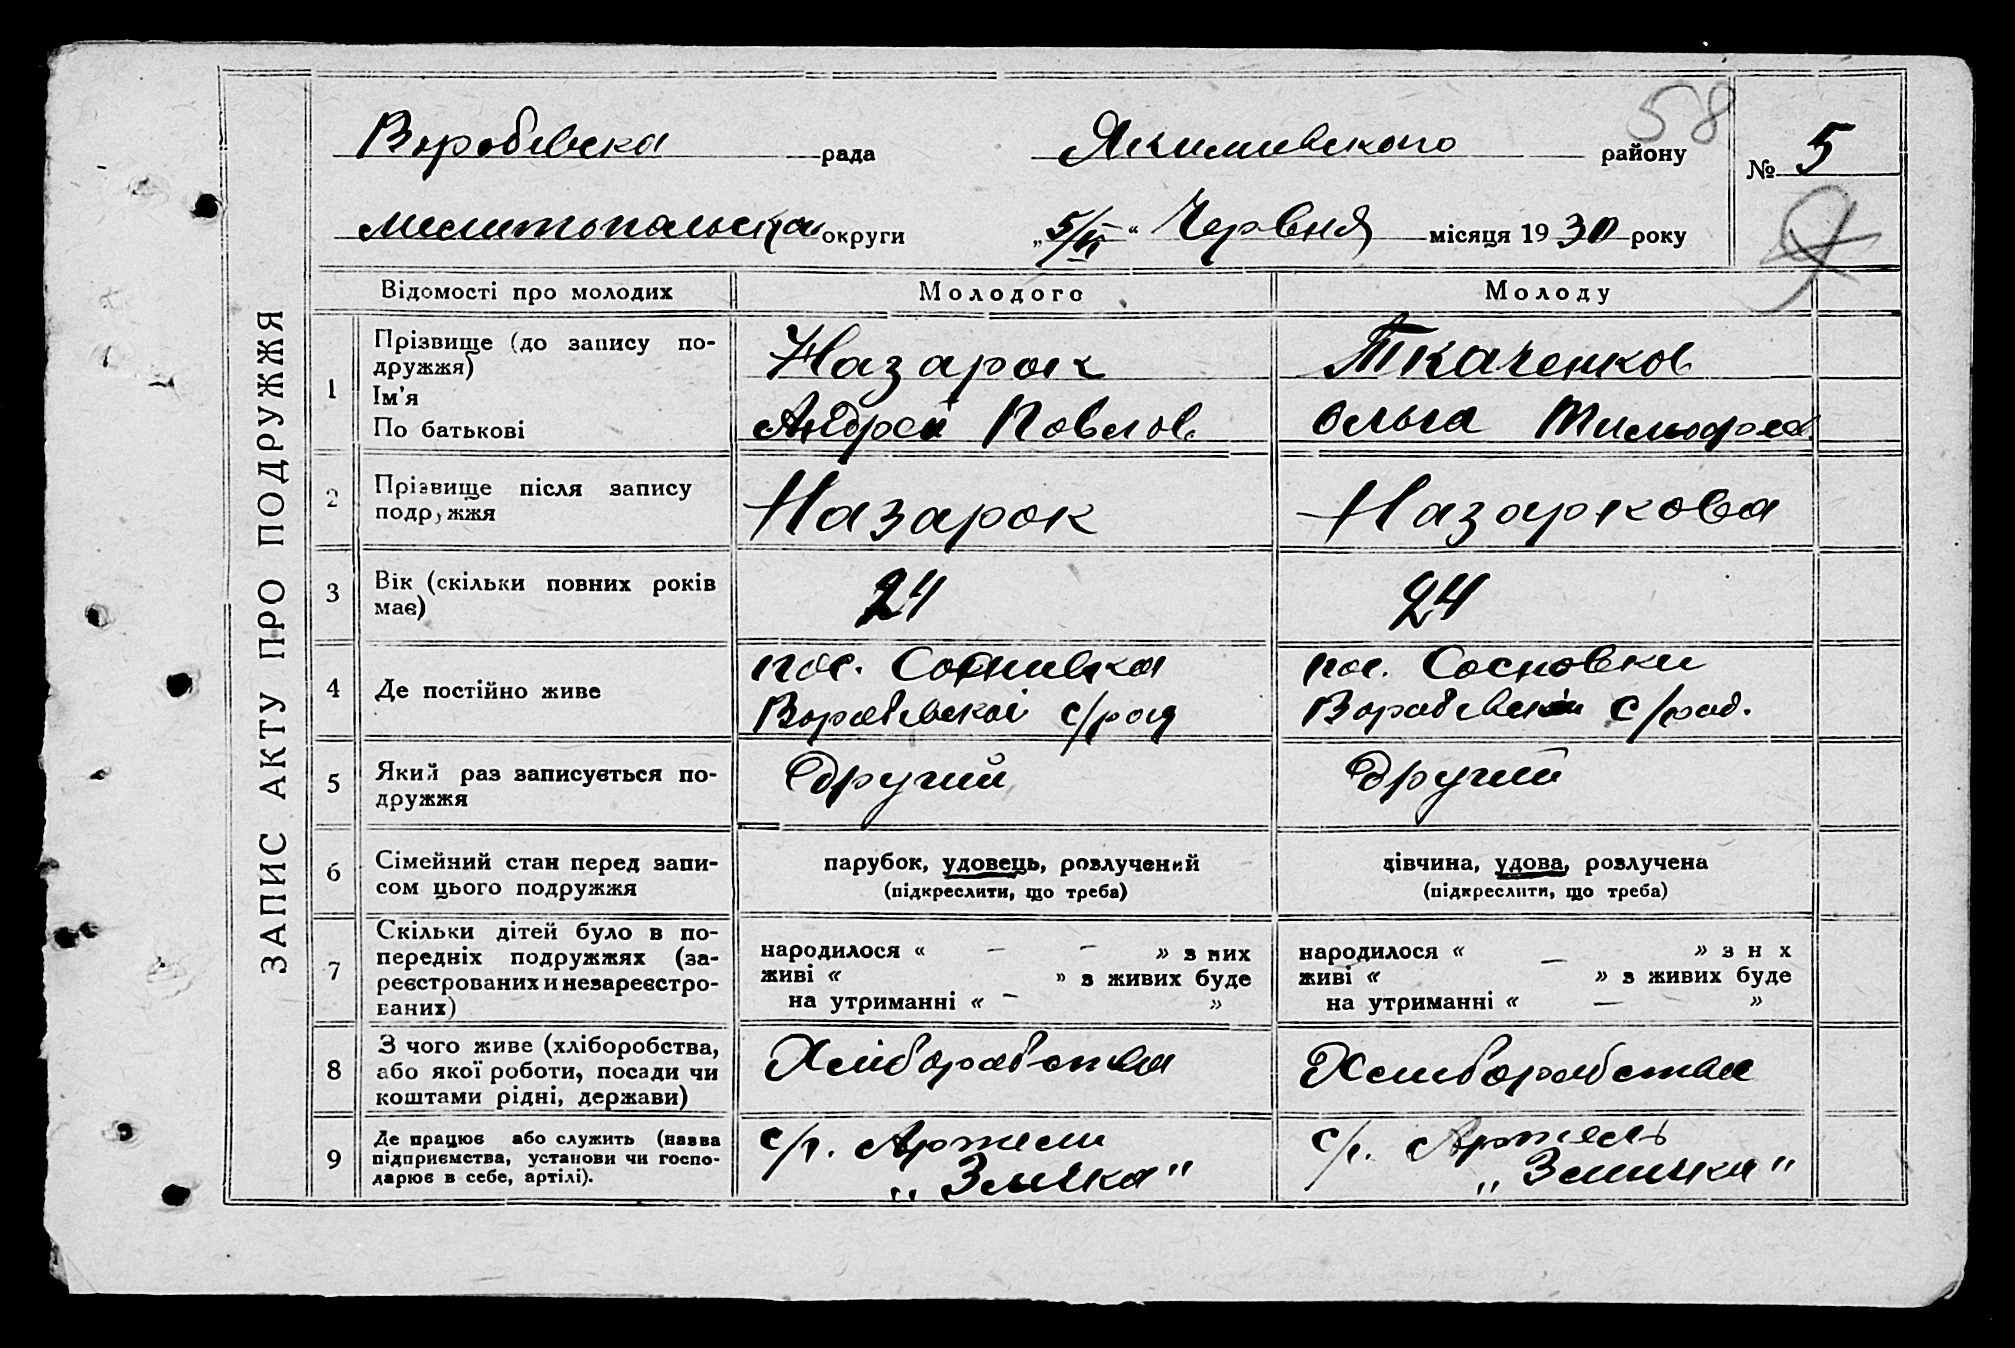 58
Воробевска рада Якимивского району № 5
мелитопальска округи „5/VI“ Червня місяця 1930 року
ЗАПИС АКТУ ПРО ПОДРУЖЖЯ
Відомості про молодих Молодого Молоду
1 Прізвище (до запису подружжя) Назарок Ткаченков
Ім'я
По батькові Андрей Повлов. Ольга
2 Прізвище після запису подружжя Назарок Назаркова
3 Вік (скільки повних років має) 24 24
4 Де постійно живе пос. Соснивка пос. Сосновки
Воробевскоі с/рад Воробевскои с/рад.
5 Який раз записується подружжя Другий Другий
6 Сімейний стан перед записом цього подружжя парубок, удовець, розлучений дівчина, удова, розлучена
(підкреслити, що треба) (підкреслити, що треба)
7 Скільки дітей було в попередніх подружжях (зареєстрованих и незареєстрованих) народилося « – – » з них народилося « – » з н х
живі « » з живих буде живі « » з живих буде
на утриманні « – » на утриманні « – »
8 З чого живе (хліборобства, або якої роботи, посади чи коштами рідні, держави) Хліборобства Хлиборобства
9 Де працює або служить (назва підприємства, установи чи господарює в себе, артілі). с/г. Артели с/г. Артель
„Змычка" „Змичка"